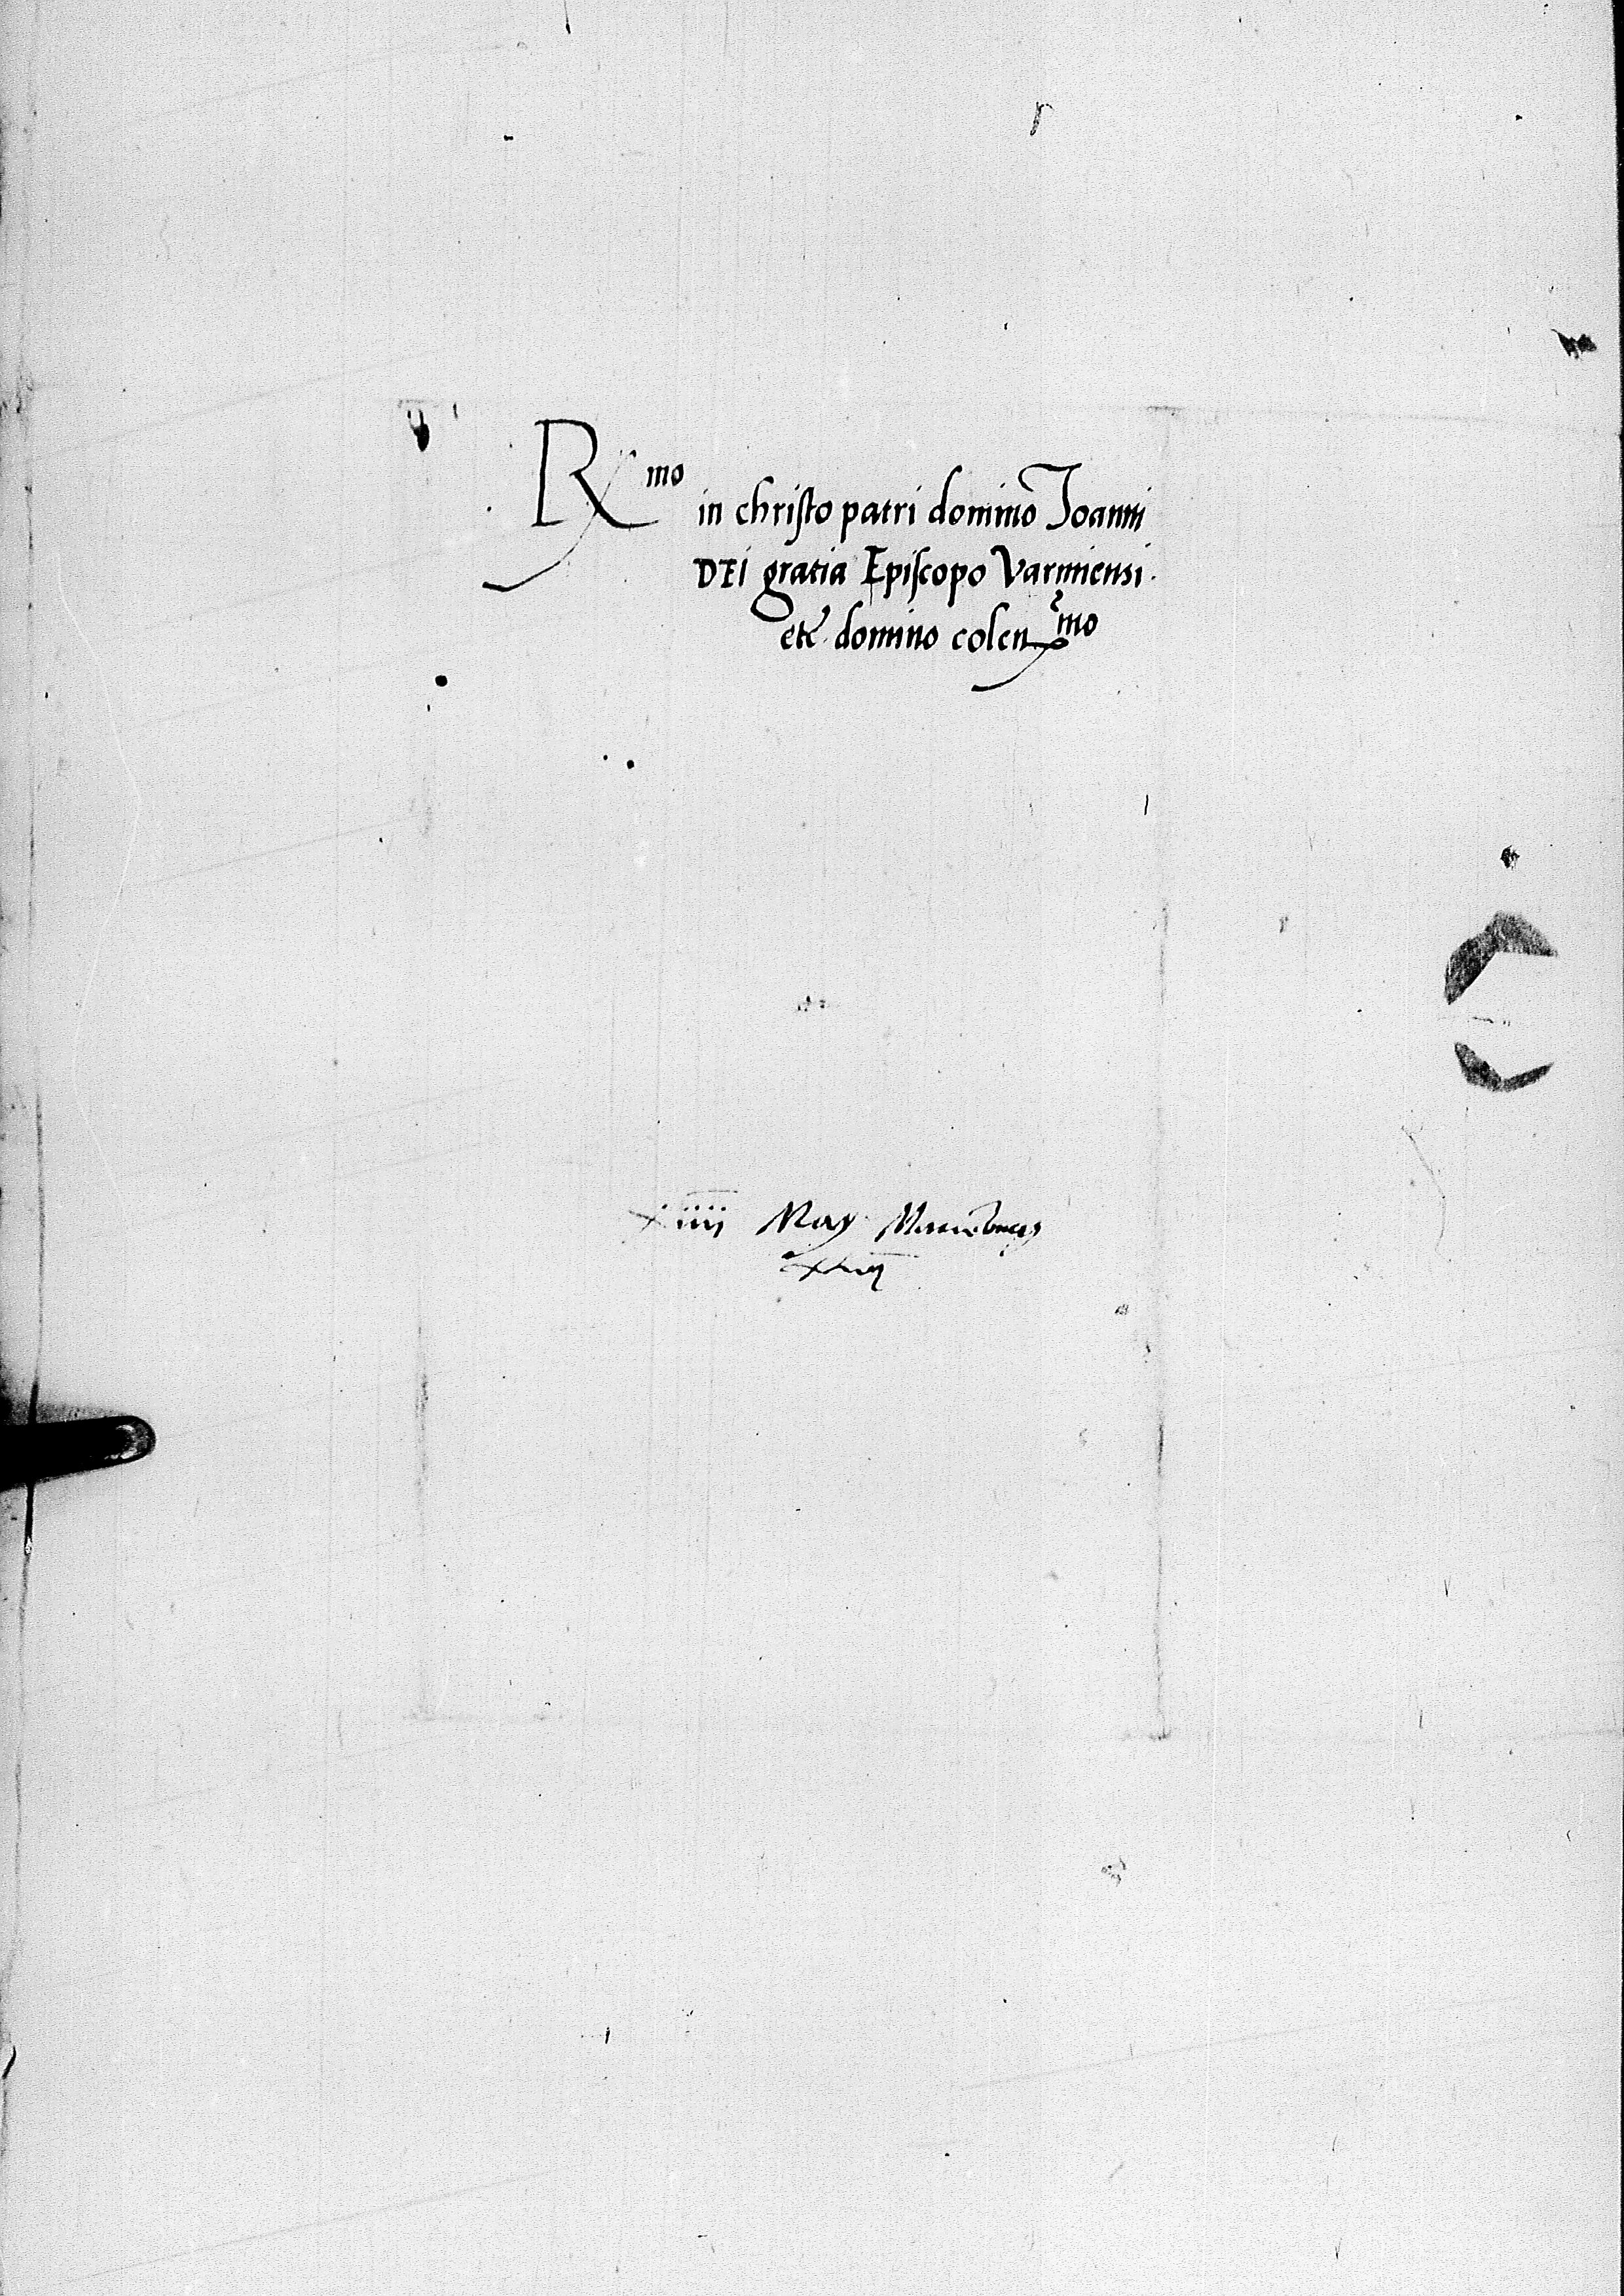 Rmo in christo patri domino Joanni
DEI gratia Episcopo Varmiensi.
etc. domino colenmo
xiiii May Marienburg